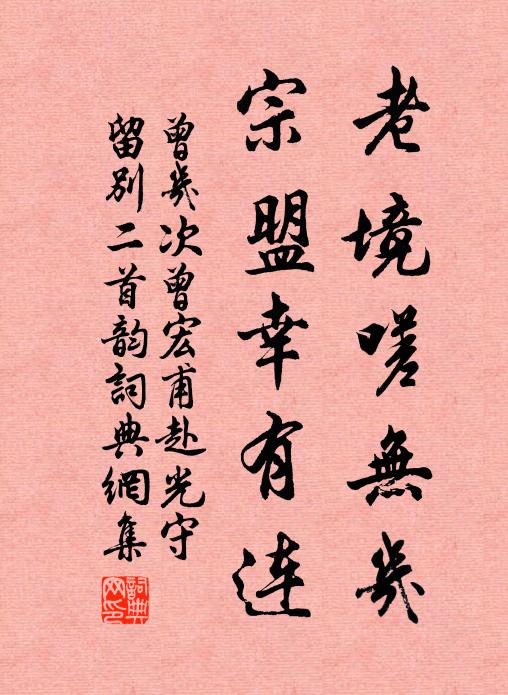 老境嗟無幾
宗盟幸有连
曾幾次曾宏甫赴光守
留别二首韵詞典網集
詞典网印